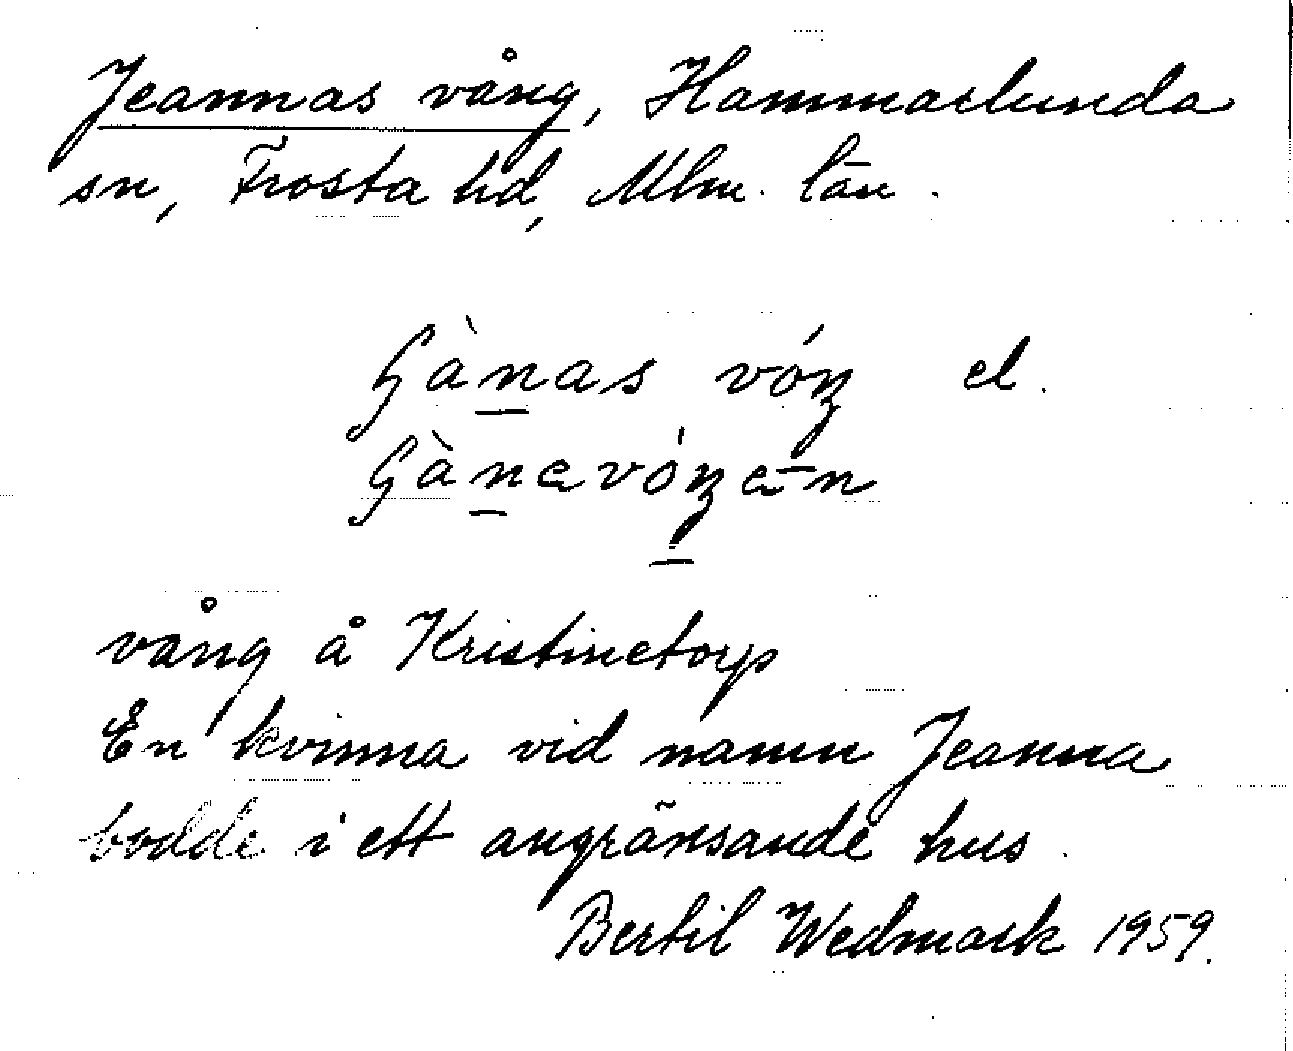 Jeannas vång, Hammarlunda
sn, Frosta hd, Mlm. län.
Gànas vóŋ el.
Gànavóŋa-n
vång å Kristinetorp
En kvinna vid namn Jeanna
bodde i ett angränsande hus.
Bertil Wedmark 1959.